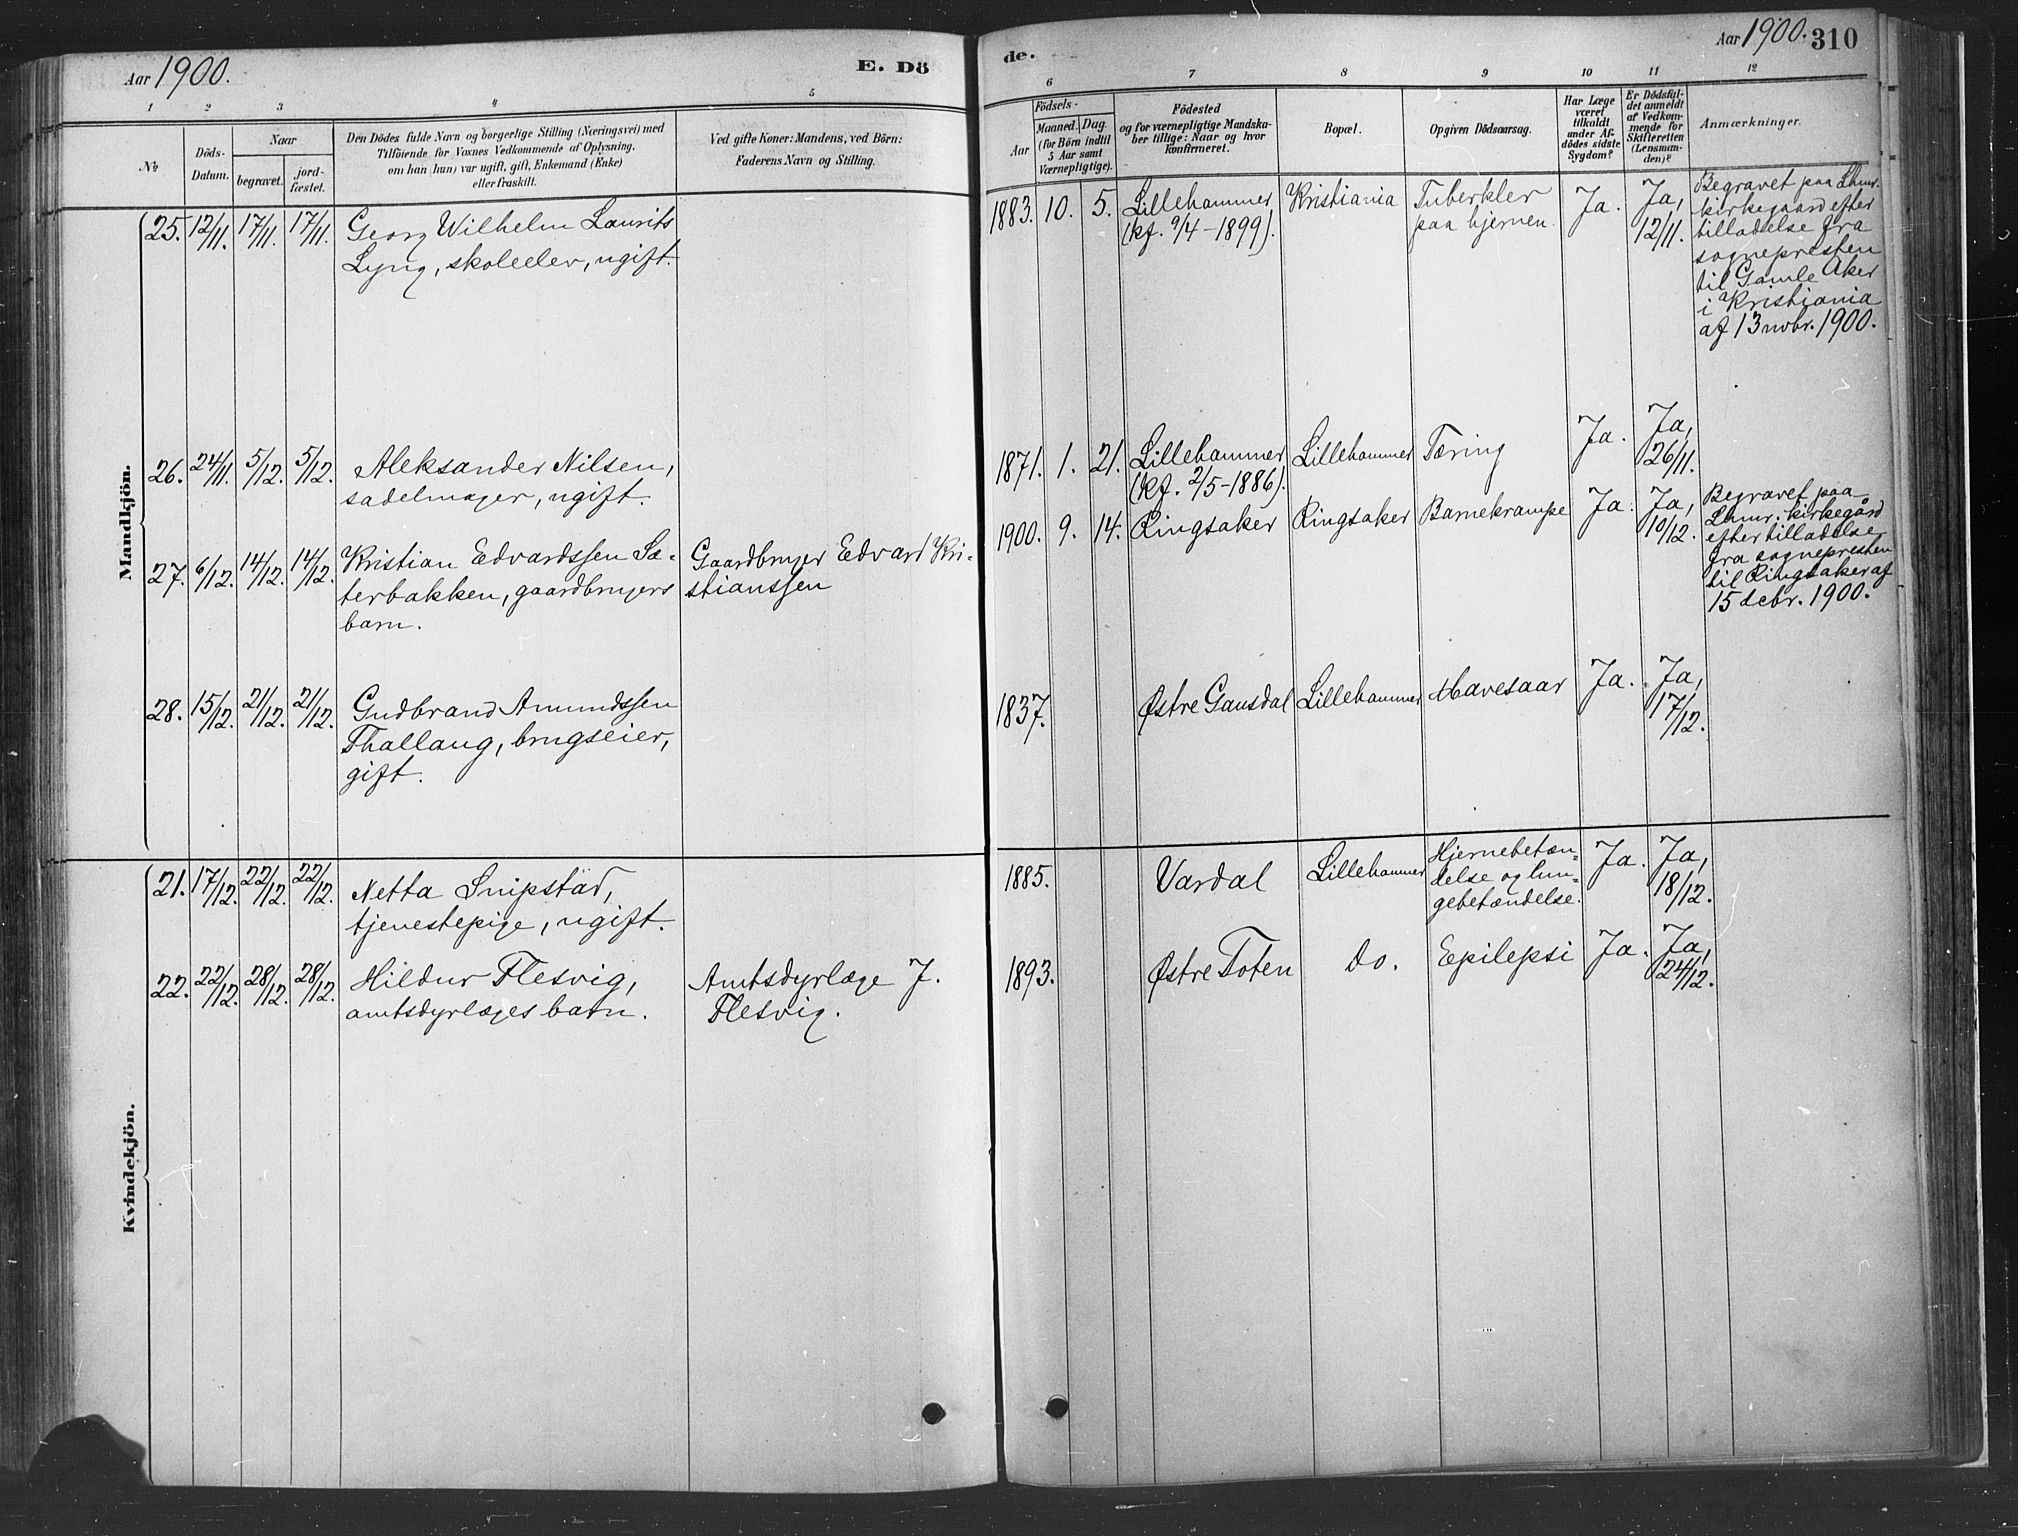 Aar 1900.
E. Dö
1 2 3 4 5
No
Döds-
Datum.
Naar
begravet.
jord-
fæstet.
Den Dödes fulde Navn og borgerlige Stilling (Næringsvei) med
Tilföiende for Voxnes Vedkommende af Oplysning.
om han (hun) var ugift, gift, Enkemand (Enke)
eller fraskilt.
Ved gifte Koner: Mandens, ved Börn:
Faderens Navn og Stilling.
Mandkjön.
25. 12/11. 17/11. 17/11. Georg Wilhelm Laurits
Lyng, skoleelev, ugift.
26. 24/11. 5/12. 5/12. Aleksander Nilsen,
sadelmager, ugift.
27. 6/12. 14/12. 14/12. Kristian Edvardssen Sæ- Gaardbruger Edvard Kri-
terbakken, gaardbrugers stianssen
barn.
28. 15/12. 21/12. 21/12. Gudbrand Amundssen
Thallaug, brugseier,
gift.
Kvindekjön.
21. 17/12. 22/12. 22/12. Netta Snipstad,
tjenestepige, ugift.
22. 22/12. 28/12. 28/12. Hildur Flesvig, Amtsdyrlæge J.
amtsdyrlæges barn. Flesvig.
de.
Aar 1900. 310
6 7 8 9 10 11 12
Födsels-
Aar
Maaned. Dag.
(for Börn indtil
5 Aar samt
Værnepligtige).
Födested
og for værnepligtige Mandska-
ber tillige: Naar og hvor
konfirmeret.
Bopæl.
Opgiven Dödsaarsag.
Har Læge
været
tilkaldt
under Af-
dödes sidste
Sygdom?
Er Dödsfal-
det anmeldt
af Vedkom-
mende for
Skifteretten
(Lensman-
den)?
Anmærkninger.
1883. 10. 5. Lillehammer Kristiania Tuberkler Ja. Ja,
(kf. 9/4-1899). paa hjernen. 12/11.
Begravet paa Lhmr.
kirkegaard efter
tilladelse fra
sognepresten
til Gamle Aker
i Kristiania
af 13 novbr. 1900.
1871. 1. 21. Lillehammer Lillehammer Tæring Ja. Ja,
(kf. 2/5-1886). 26/11.
1900. 9. 14. Ringsaker Ringsaker Barnekrampe Ja. Ja,
10/12.
Begravet paa
Lhmr. kirkegård
efter tilladelse
fra sognepresten
til Ringsaker af
15 decbr. 1900.
1837. Østre Gausdal Lillehammer Mavesaar Ja. Ja,
17/12.
1885. Vardal Lillehammer Hjernebetæn- Ja. Ja,
delse og lun- 18/12.
gebetændelse.
1893. Østre Toten do. Epilepsi Ja. Ja,
24/12.